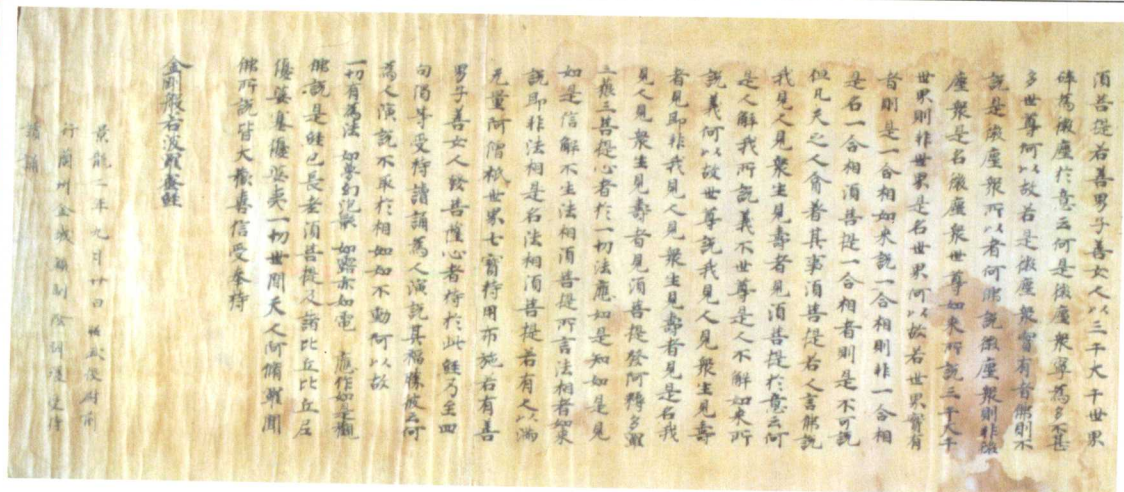 須菩提若善男子善女人以三千大千世界
碎為微塵於意云何是微塵衆寧為多不甚
多世尊何以故若是微塵衆實有者佛則不
說是微塵衆所以者何佛說微塵衆則非微
塵衆是名微塵衆世尊如來所說三千大千
世界則非世界是名世界何以故若世界實有
者則是一合相如来說一合相則非一合相
是名一合相須菩提一合相者則是不可說
但凡夫之人貪著其事須菩提若人言佛說
我見人見衆生見壽者見須菩提於意云何
是人解我所說義不世尊是人不解如來所
說義何以故世尊說我見人見衆生見壽
者見即非我見人見衆生見壽者見是名我
見人見衆生見壽者見須菩提發阿耨多羅
三藐三菩提心者於一切法應如是知如是見
如是信解不生法相須菩提所言法相者如來
說即非法相是名法相須菩提若有人以滿
无量阿僧祇世界七寳持用布施若有善
男子善女人發菩薩心者持於此經乃至四
句偈等受持讀誦為人演說其福勝彼云何
為人演說不取於相如如不動何以故
一切有為法 如夢幻泡影 如露亦如電 應作如是觀
佛說是經已長老須菩提及諸比丘比丘尼
優婆塞優婆夷一切世間天人阿脩羅聞
佛所說皆大歡喜信受奉持
金剛般若波羅蜜經
景龍二年九月廿日 昭武校尉前
行蘭州金城鎮副陰嗣瑗受持
讀誦